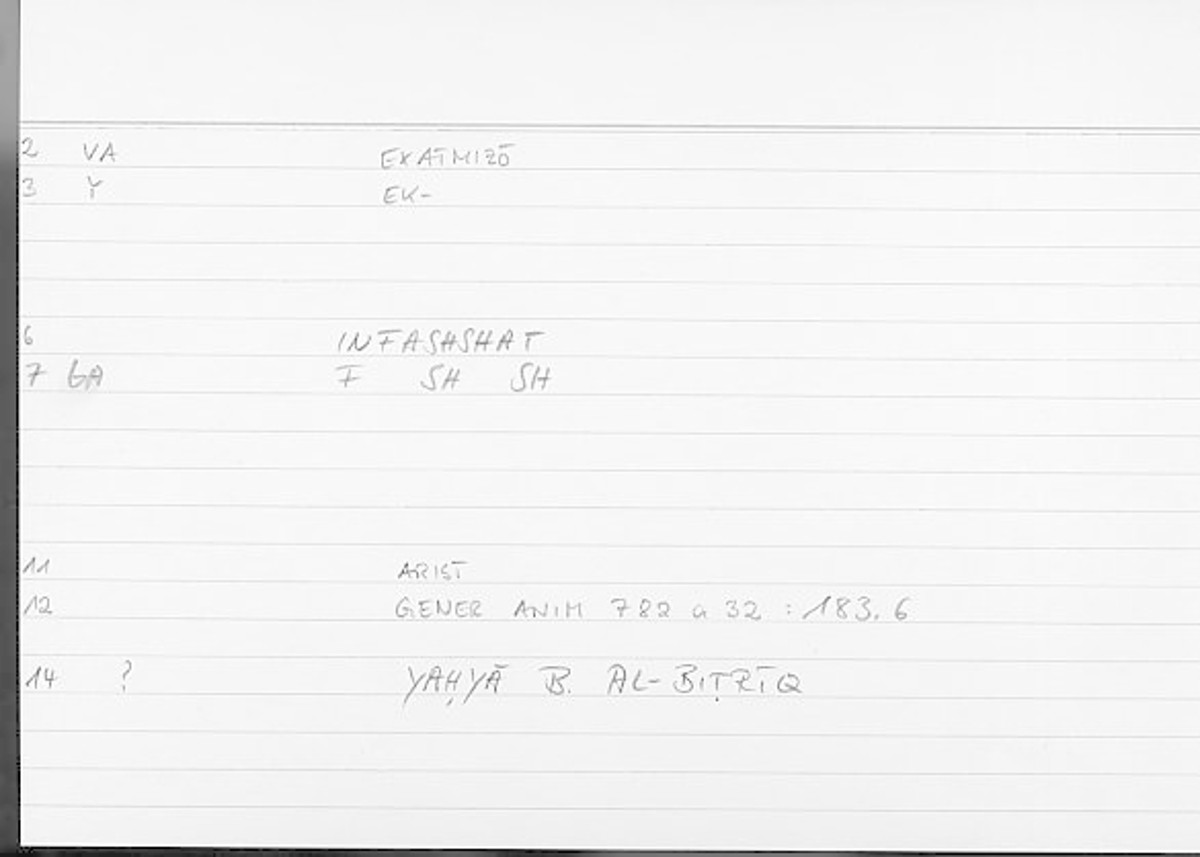 2 VA EXATMIZŌ
3 Y EK-
6 INFASHSHAT
7 GA F SH SH
11 ARIST
12 GENER ANIM 782 a 32 : 183. 6
14 ? YAḤYĀ B. AL-BIṬRĪQ